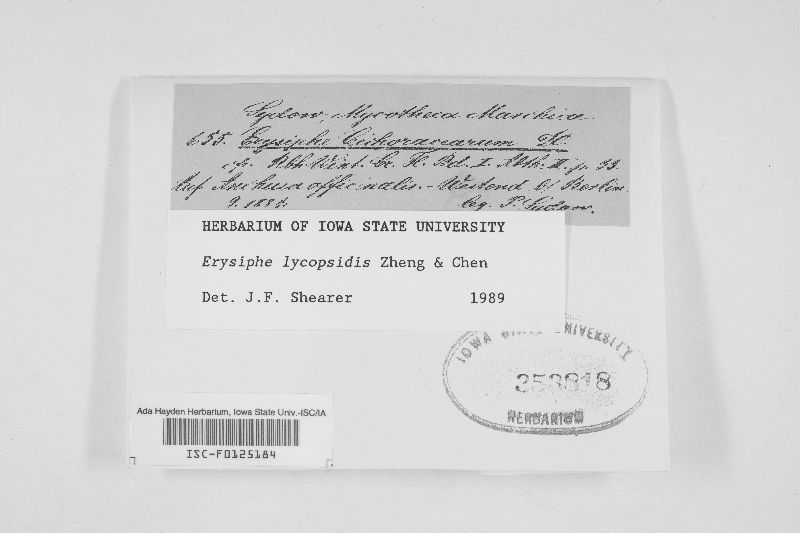 Sydow, Mycotheca Marchica.
655. Erysiphe Cichoracearum DC.
cf. Rbh. Wint. Cr. Fl. Bd. I. Abth. II. p. 33.
Auf Anchusa officinalis. - Westend b/ Berlin.
9. 1884 leg. P. Sydow.
HERBARIUM OF IOWA STATE UNIVERSITY
Erysiphe lycopsidis Zheng & Chen
Det. J.F. Shearer 1989
IOWA STATE UNIVERSITY
HERBARIUM
Ada Hayden Herbarium, Iowa State Univ.-ISC/IA
ISC-F0125184